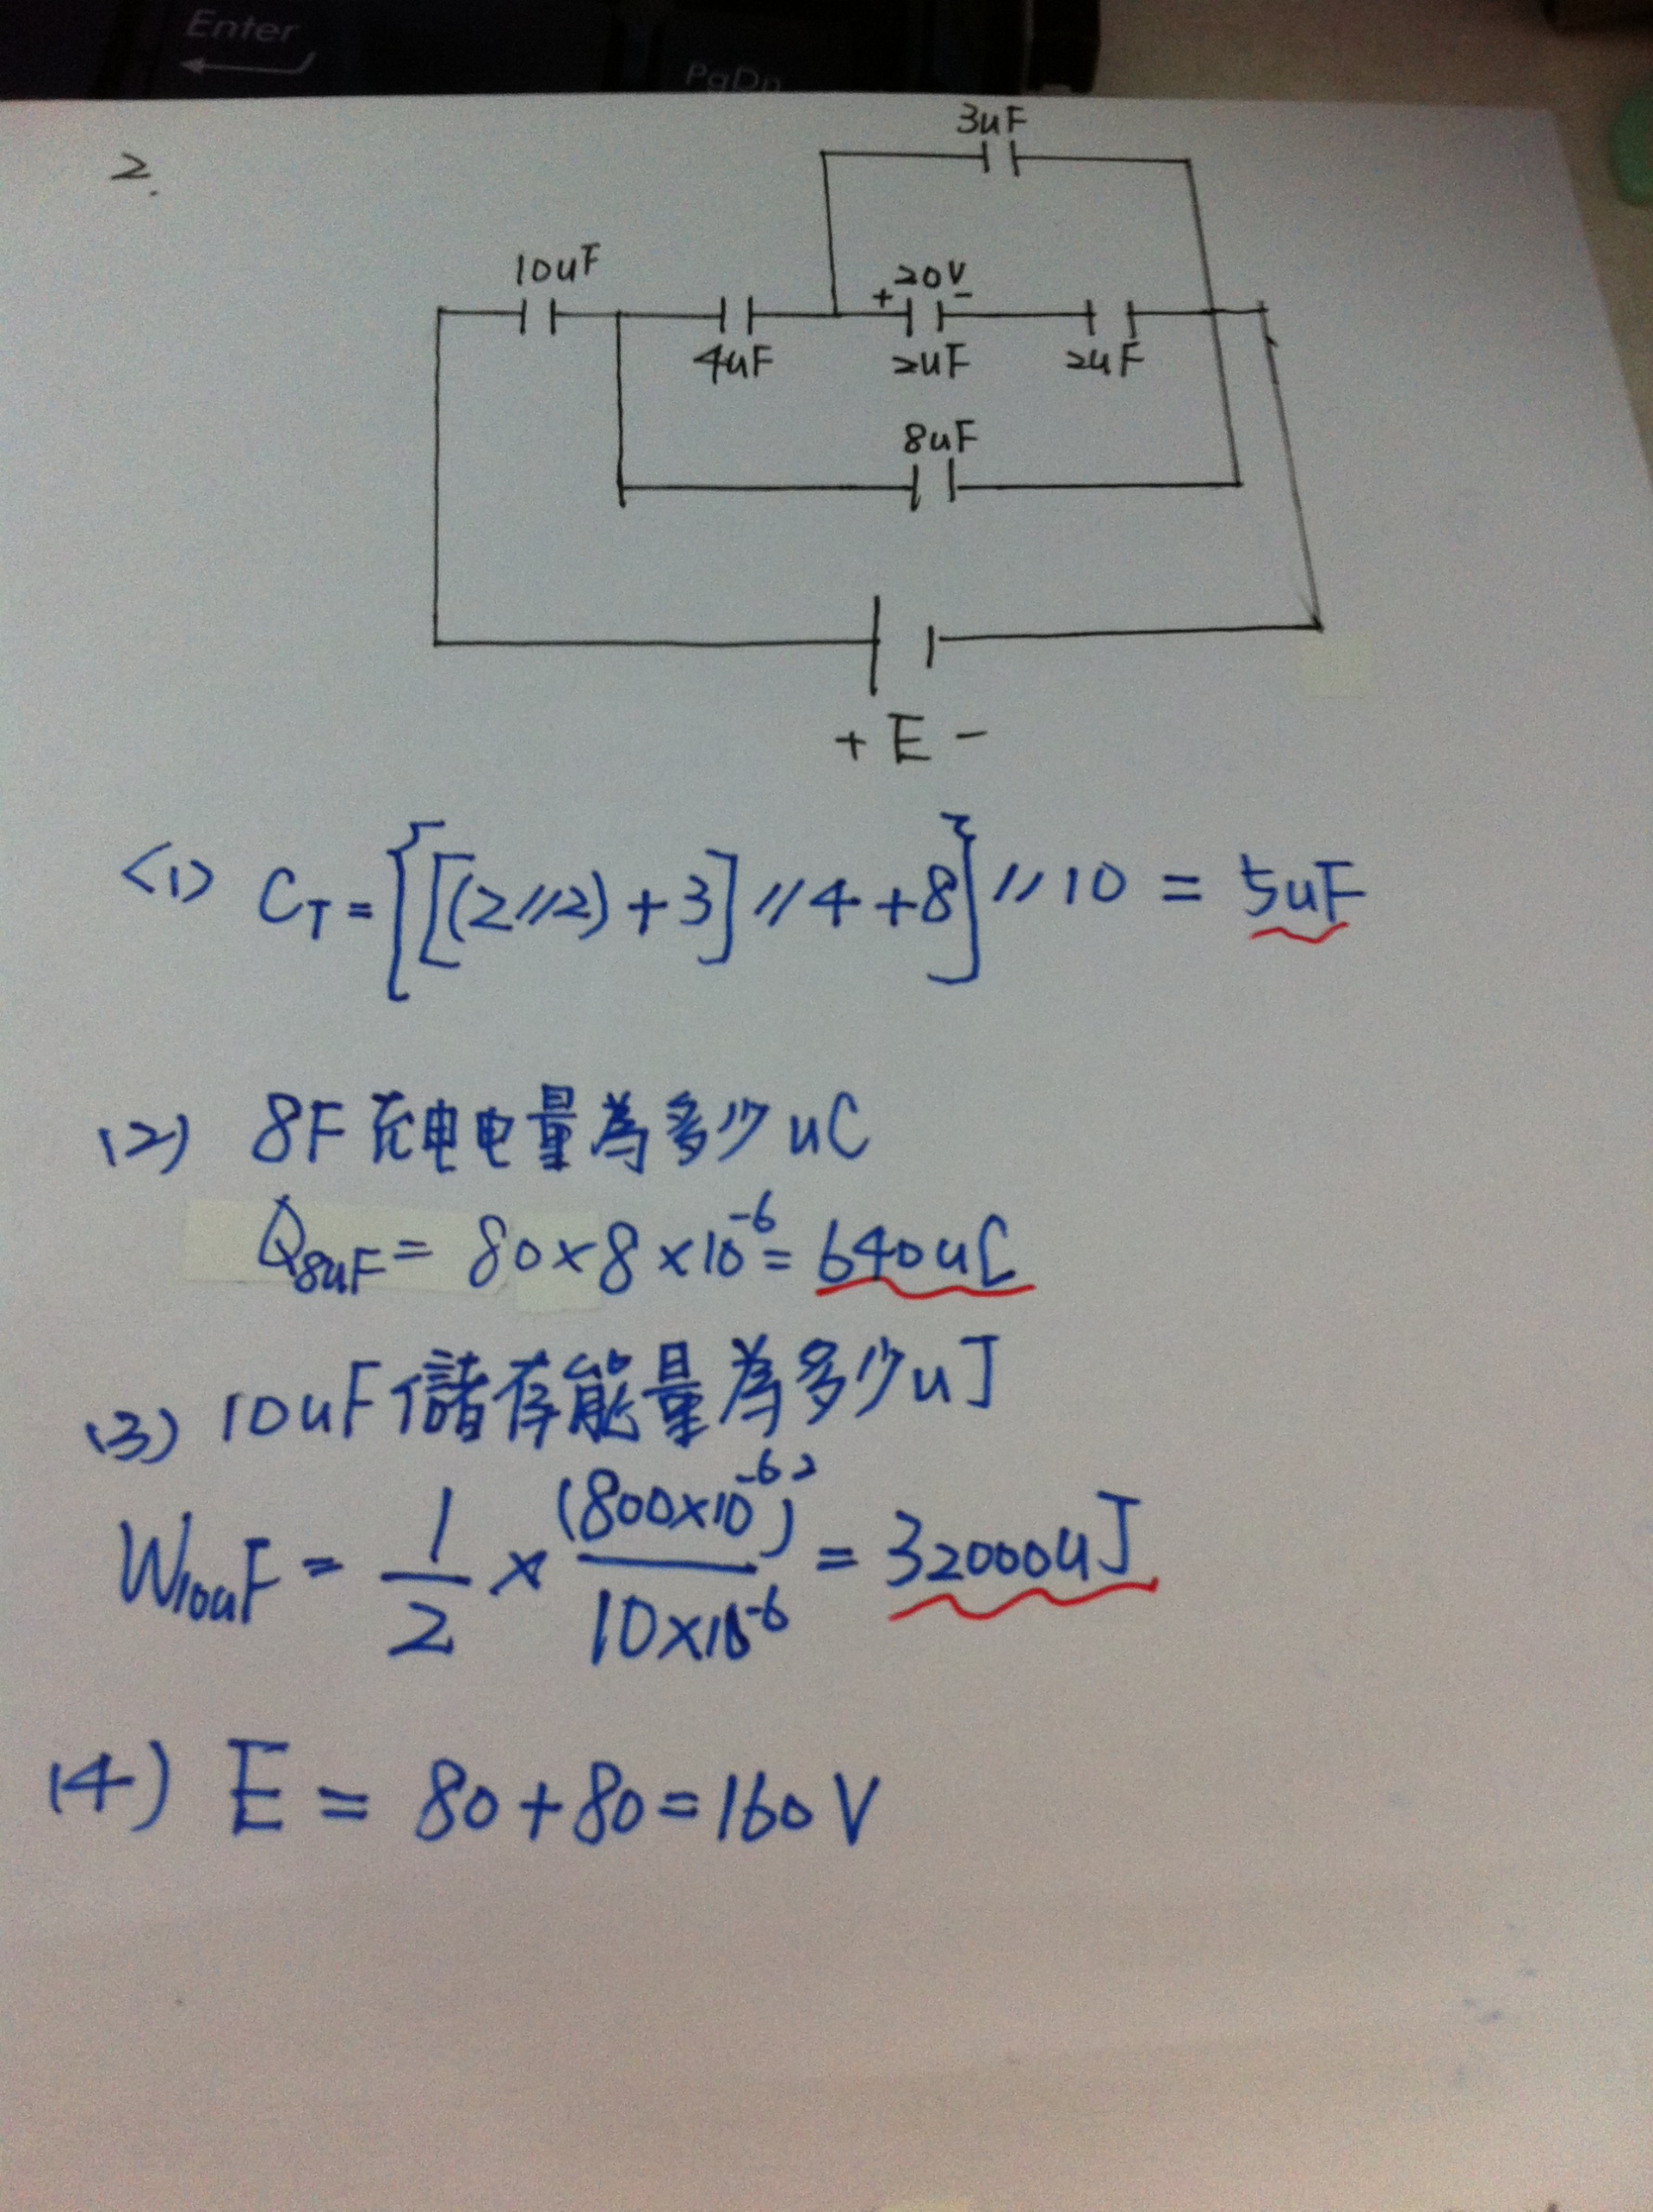 Enter
PgDn
2.
3uF
10uF
+ 20V -
4uF
2uF
2uF
8uF
+ E -
<1> CT = {[(2//2)+3]//4+8}//10 = 5uF
(2) 8F充电电量為多少uC
Q8uF = 80×8×10^-6 = 640uC
(3) 10uF儲存能量為多少uJ
W10uF = 1/2 × (800×10^-6)^2 / 10×10^-6 = 32000uJ
(4) E = 80+80=160V